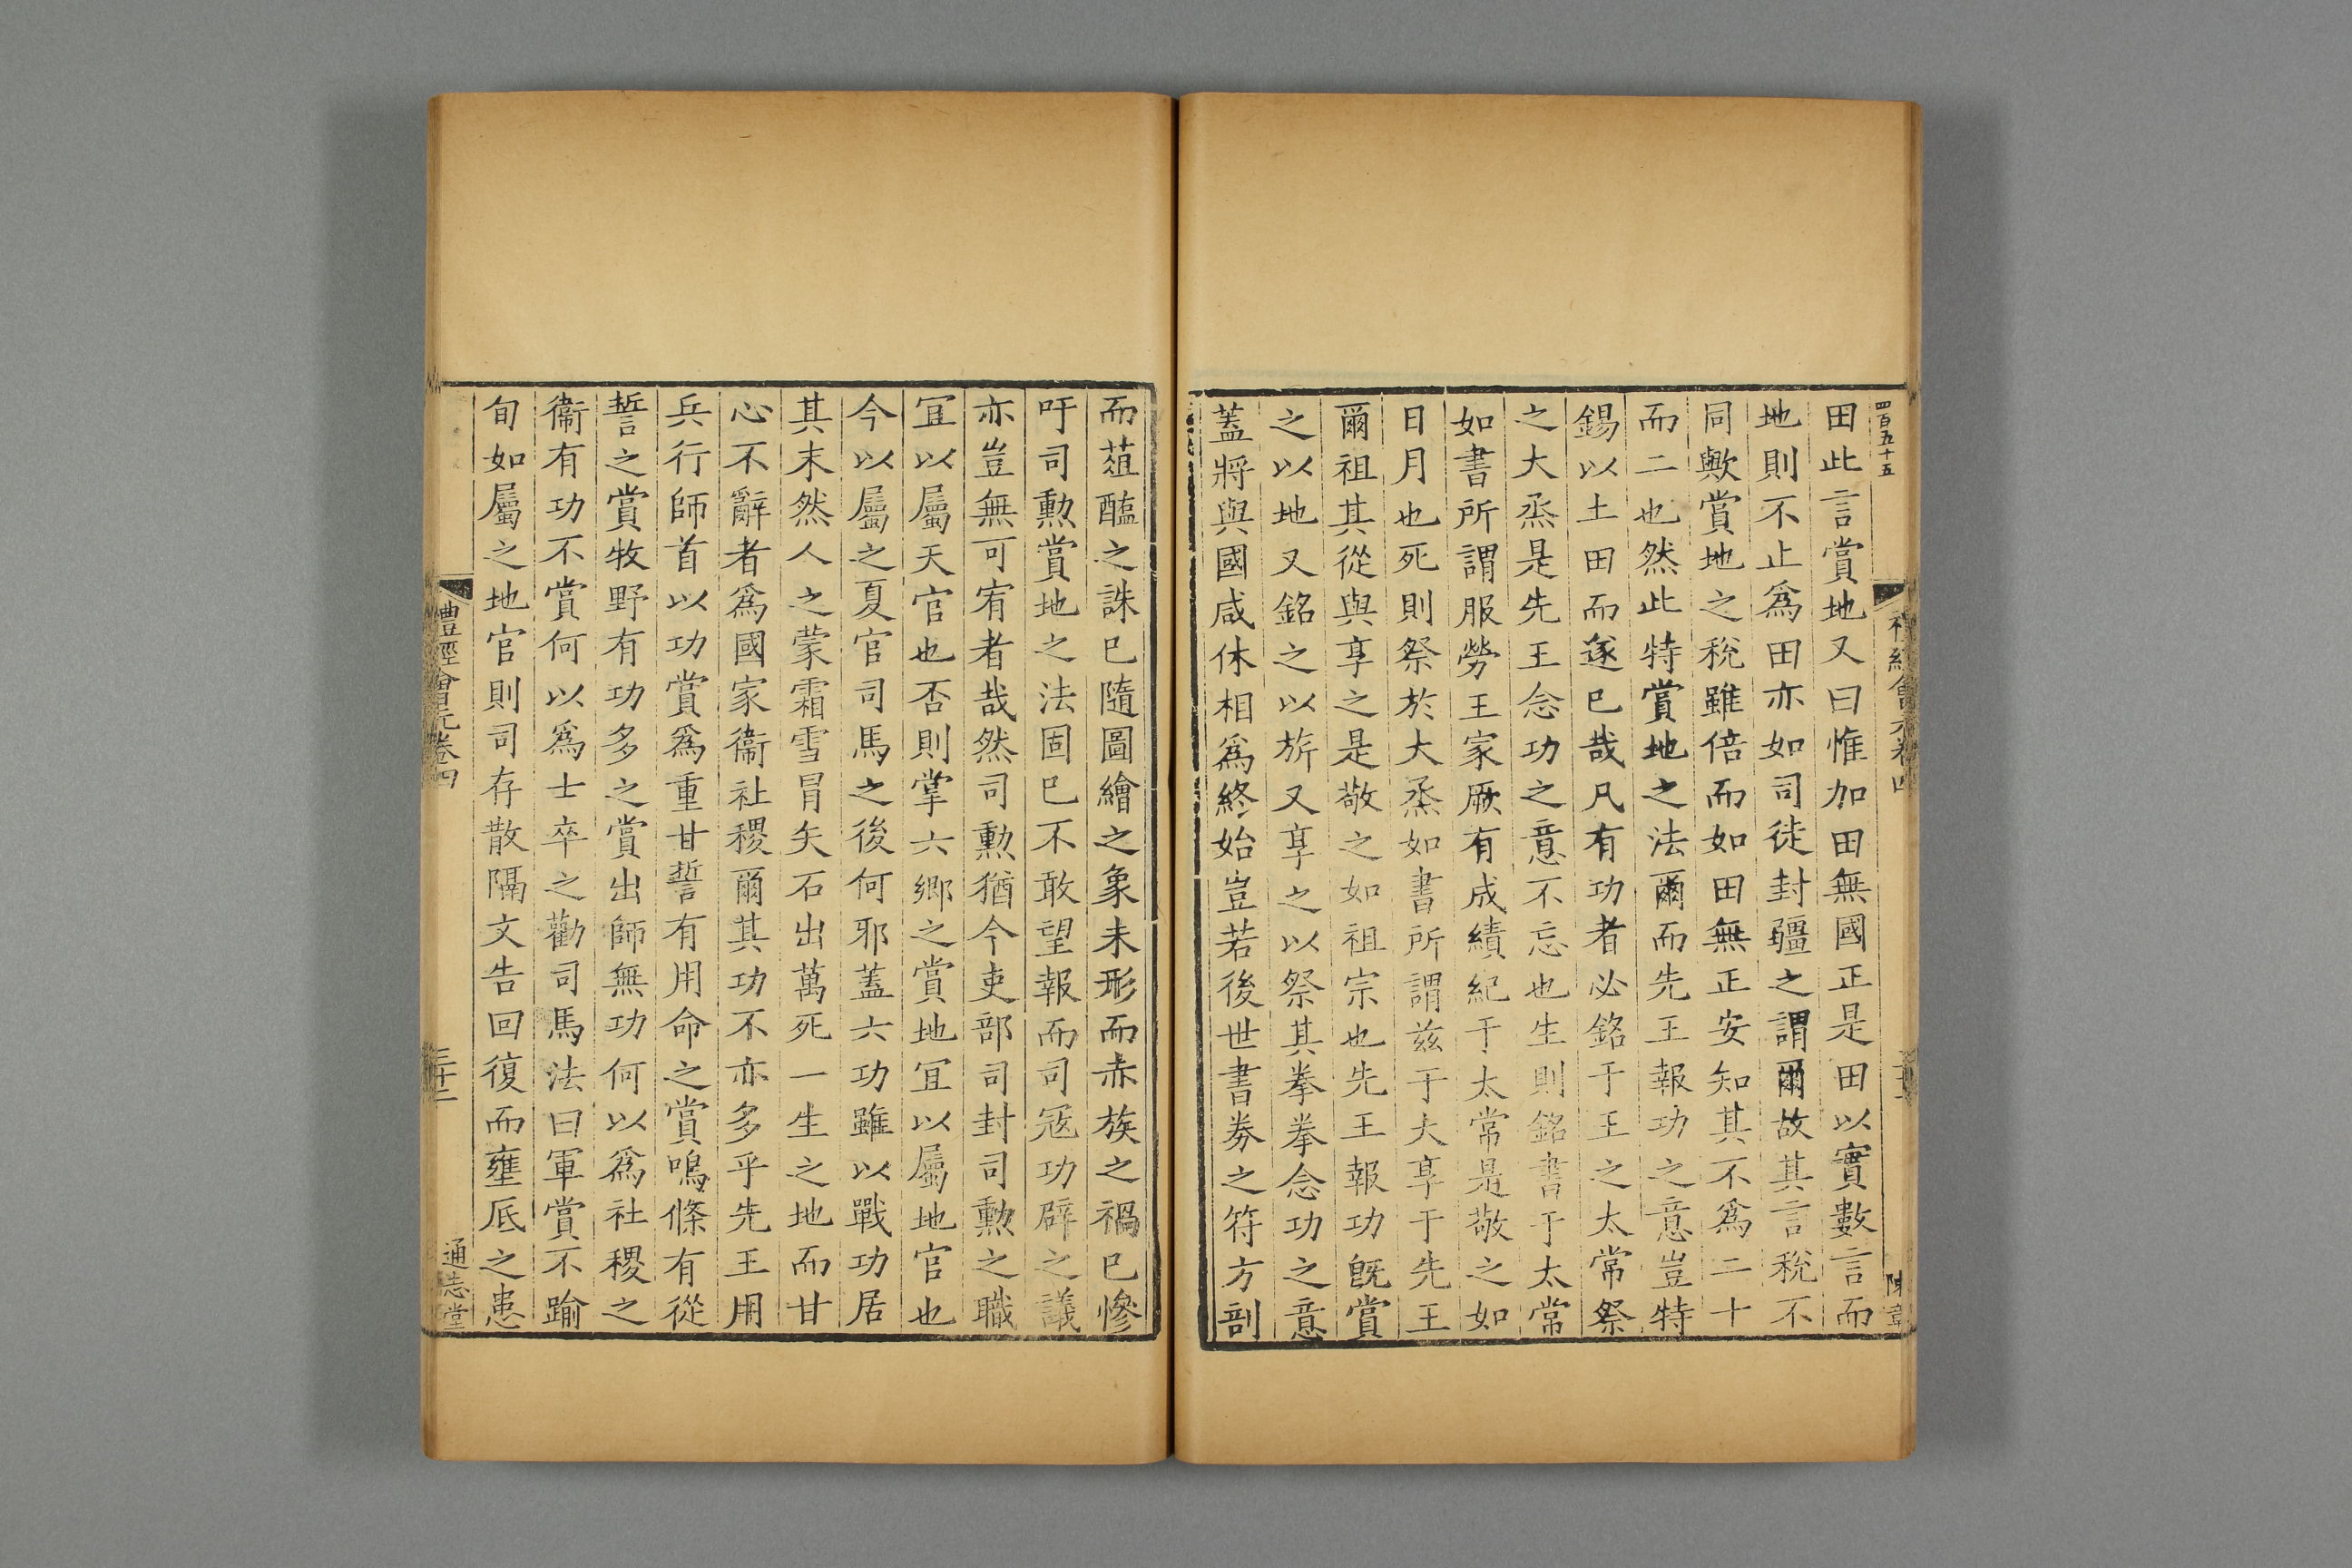 四百五十五
田此言賞地又曰惟加田無國正是田以實數言而
地則不止爲田亦如司徒封疆之謂爾故其言稅不
同歟賞地之稅雖倍而如田無正安知其不爲二十
而二也然此特賞地之法爾而先王報功之意豈特
錫以土田而遂已哉凡有功者必銘于王之太常祭
之大烝是先王念功之意不忘也生則銘書于太常
如書所謂服勞王家厥有成績紀于太常是敬之如
日月也死則祭於大烝如書所謂茲于大享于先王
爾祖其從與享之是敬之如祖宗也先王報功旣賞
之以地又銘之以旂又享之以祭其拳拳念功之意
蓋將與國咸休相爲終始豈若後世書券之符方剖
而葅醢之誅已隨圖繪之象未形而赤族之禍已慘
吁司勲賞地之法固已不敢望報而司宼功辟之議
亦豈無可宥者哉然司勲猶今吏部司封司勲之職
宜以屬天官也否則掌六鄉之賞地宜以屬地官也
今以屬之夏官司馬之後何邪蓋六功雖以戰功居
其末然人之蒙霜雪冒矢石出萬死一生之地而甘
心不辭者爲國家衞社稷爾其功不亦多乎先王用
兵行師首以功賞爲重甘誓有用命之賞鳴條有從
誓之賞牧野有功多之賞出師無功何以爲社稷之
衞有功不賞何以爲士卒之勸司馬法曰軍賞不踰
旬如屬之地官則司存散隔文告回復而壅底之患
禮經會元卷四
三十二
通志堂